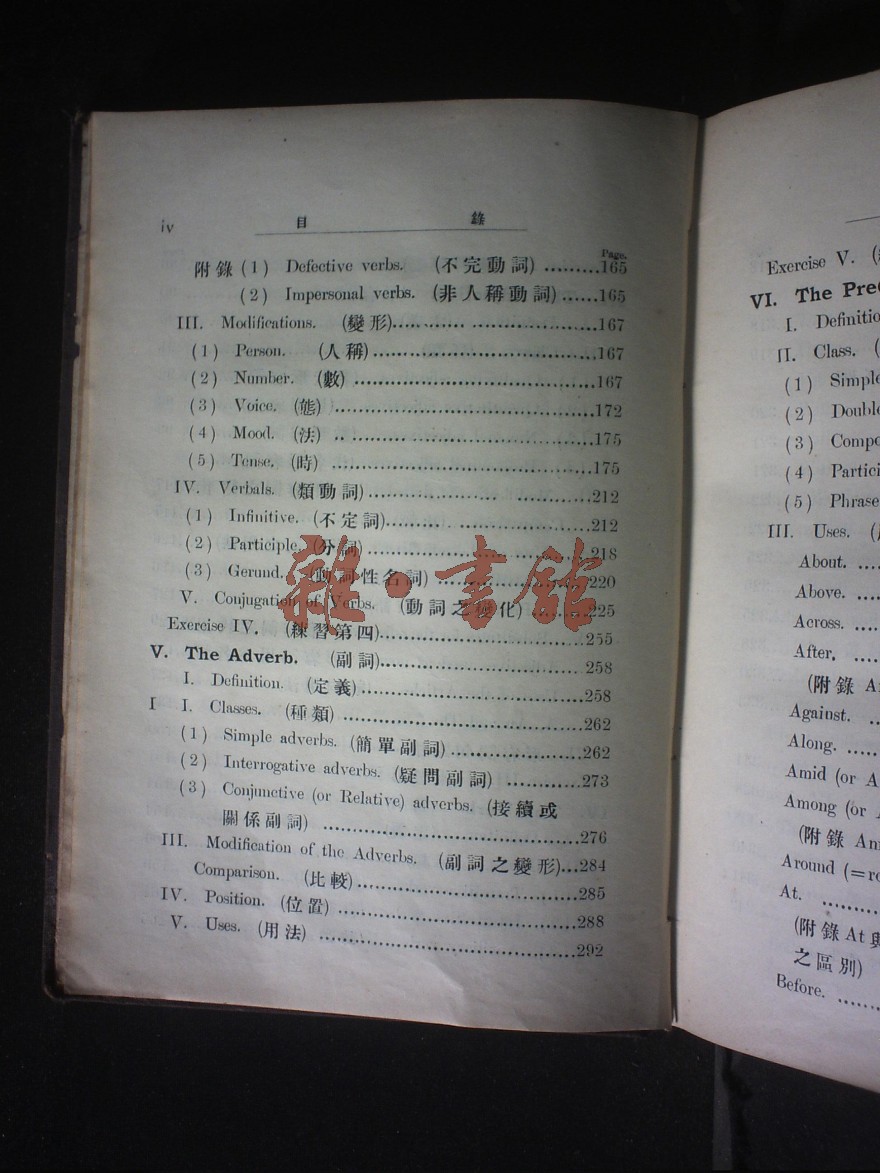 iv 目 錄
Page.
附錄 (1) Defective verbs. (不完動詞) .........165
(2) Impersonal verbs. (非人稱動詞) ......165
III. Modifications. (變形)..............................167
(1) Person. (人稱)..............................167
(2) Number. (數) ..............................167
(3) Voice. (態) ..............................172
(4) Mood. (法) ..............................175
(5) Tense. (時) ..............................175
IV. Verbals. (類動詞)..............................212
(1) Infinitive. (不定詞)..............................212
(2) Participle. (分詞)..............................218
(3) Gerund. (動詞性名詞) .....................220
V. Conjugation of Verbs. (動詞之變化) .........225
Exercise IV. (練習第四)..............................255
V. The Adverb. (副詞)..............................258
I. Definition. (定義)..............................258
I I. Classes. (種類) ..............................262
(1) Simple adverbs. (簡單副詞) ..................262
(2) Interrogative adverbs. (疑問副詞) ............273
(3) Conjunctive (or Relative) adverbs. (接續或
關係副詞) ..............................276
III. Modification of the Adverbs. (副詞之變形)...284
Comparison. (比較)..............................285
IV. Position. (位置) ..............................288
V. Uses. (用法) ..............................292
雜·書館
Exercise V.
VI. The
I.
II. Class.
(1)
(2)
(3)
(4)
(5) Phrase
III. Uses.
About.
Above.
Across.
After.
(附錄
Against.
Along.
Amid (or
Among (or
(附錄
Around
At.
(附錄 At 與
之區別)
Before.